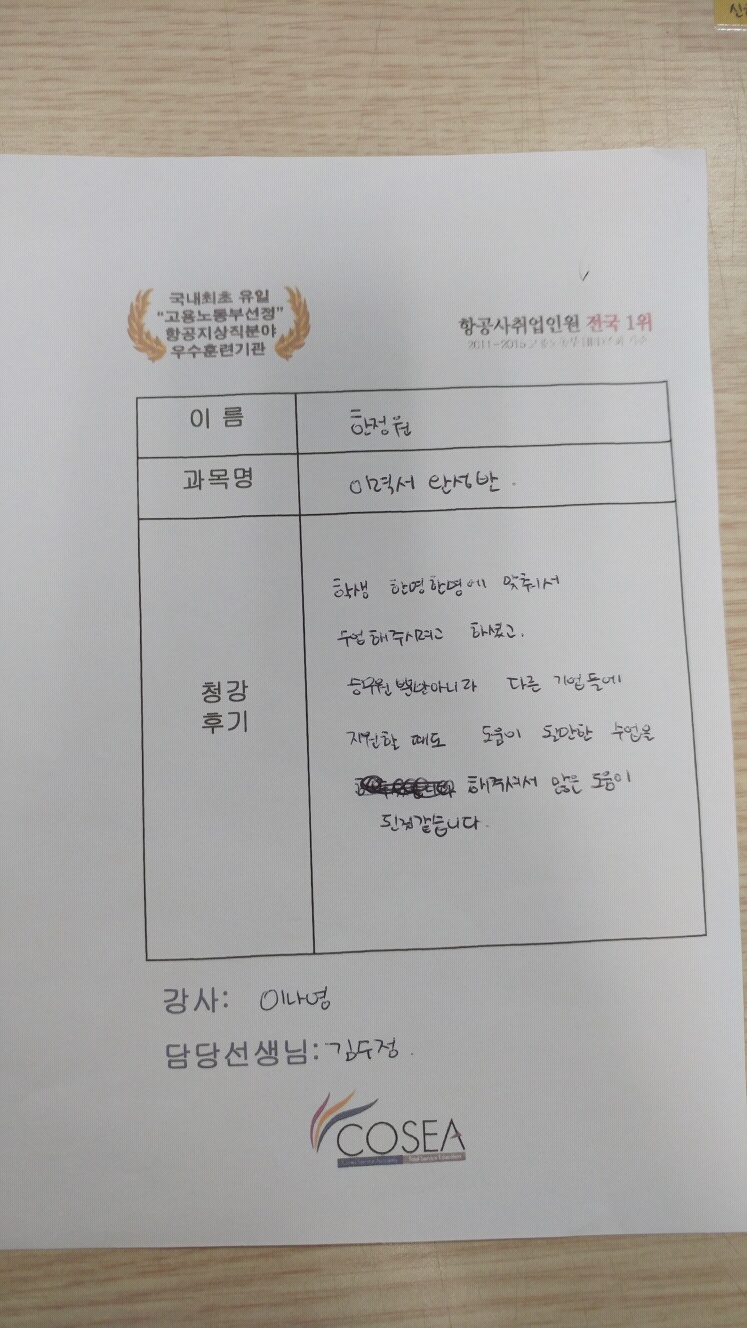 신
국내최초 유일
"고용노동부선정"
항공지상직분야
우수훈련기관
항공사취업인원 전국 1위
2011-2015
이 름
한정원
과목명
이력서 완성반.
청강
후기
학생 한명한명에 맞춰서
수업해주시려고 하셨고.
승무원 뿐만아니라 다른 기업들에
지원할 때도 도움이 될만한 수업을
해주셔서 많은 도움이
된점같습니다.
강사: 이나영
담당선생님: 김수정.
COSEA
Total Service Education